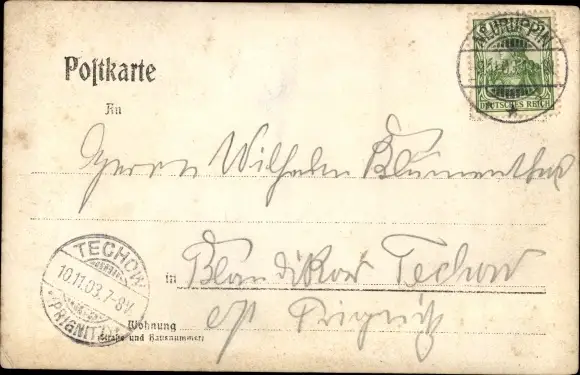 NEURUPPIN
DEUTSCHES REICH
Postkarte
An
Herrn Wilhelm Blumenthal
TECHOW
10.11.03.7-8V
(PRIGNITZ)
in Blandikow Techow
Prignitz
Wohnung
(Straße und Hausnummer)